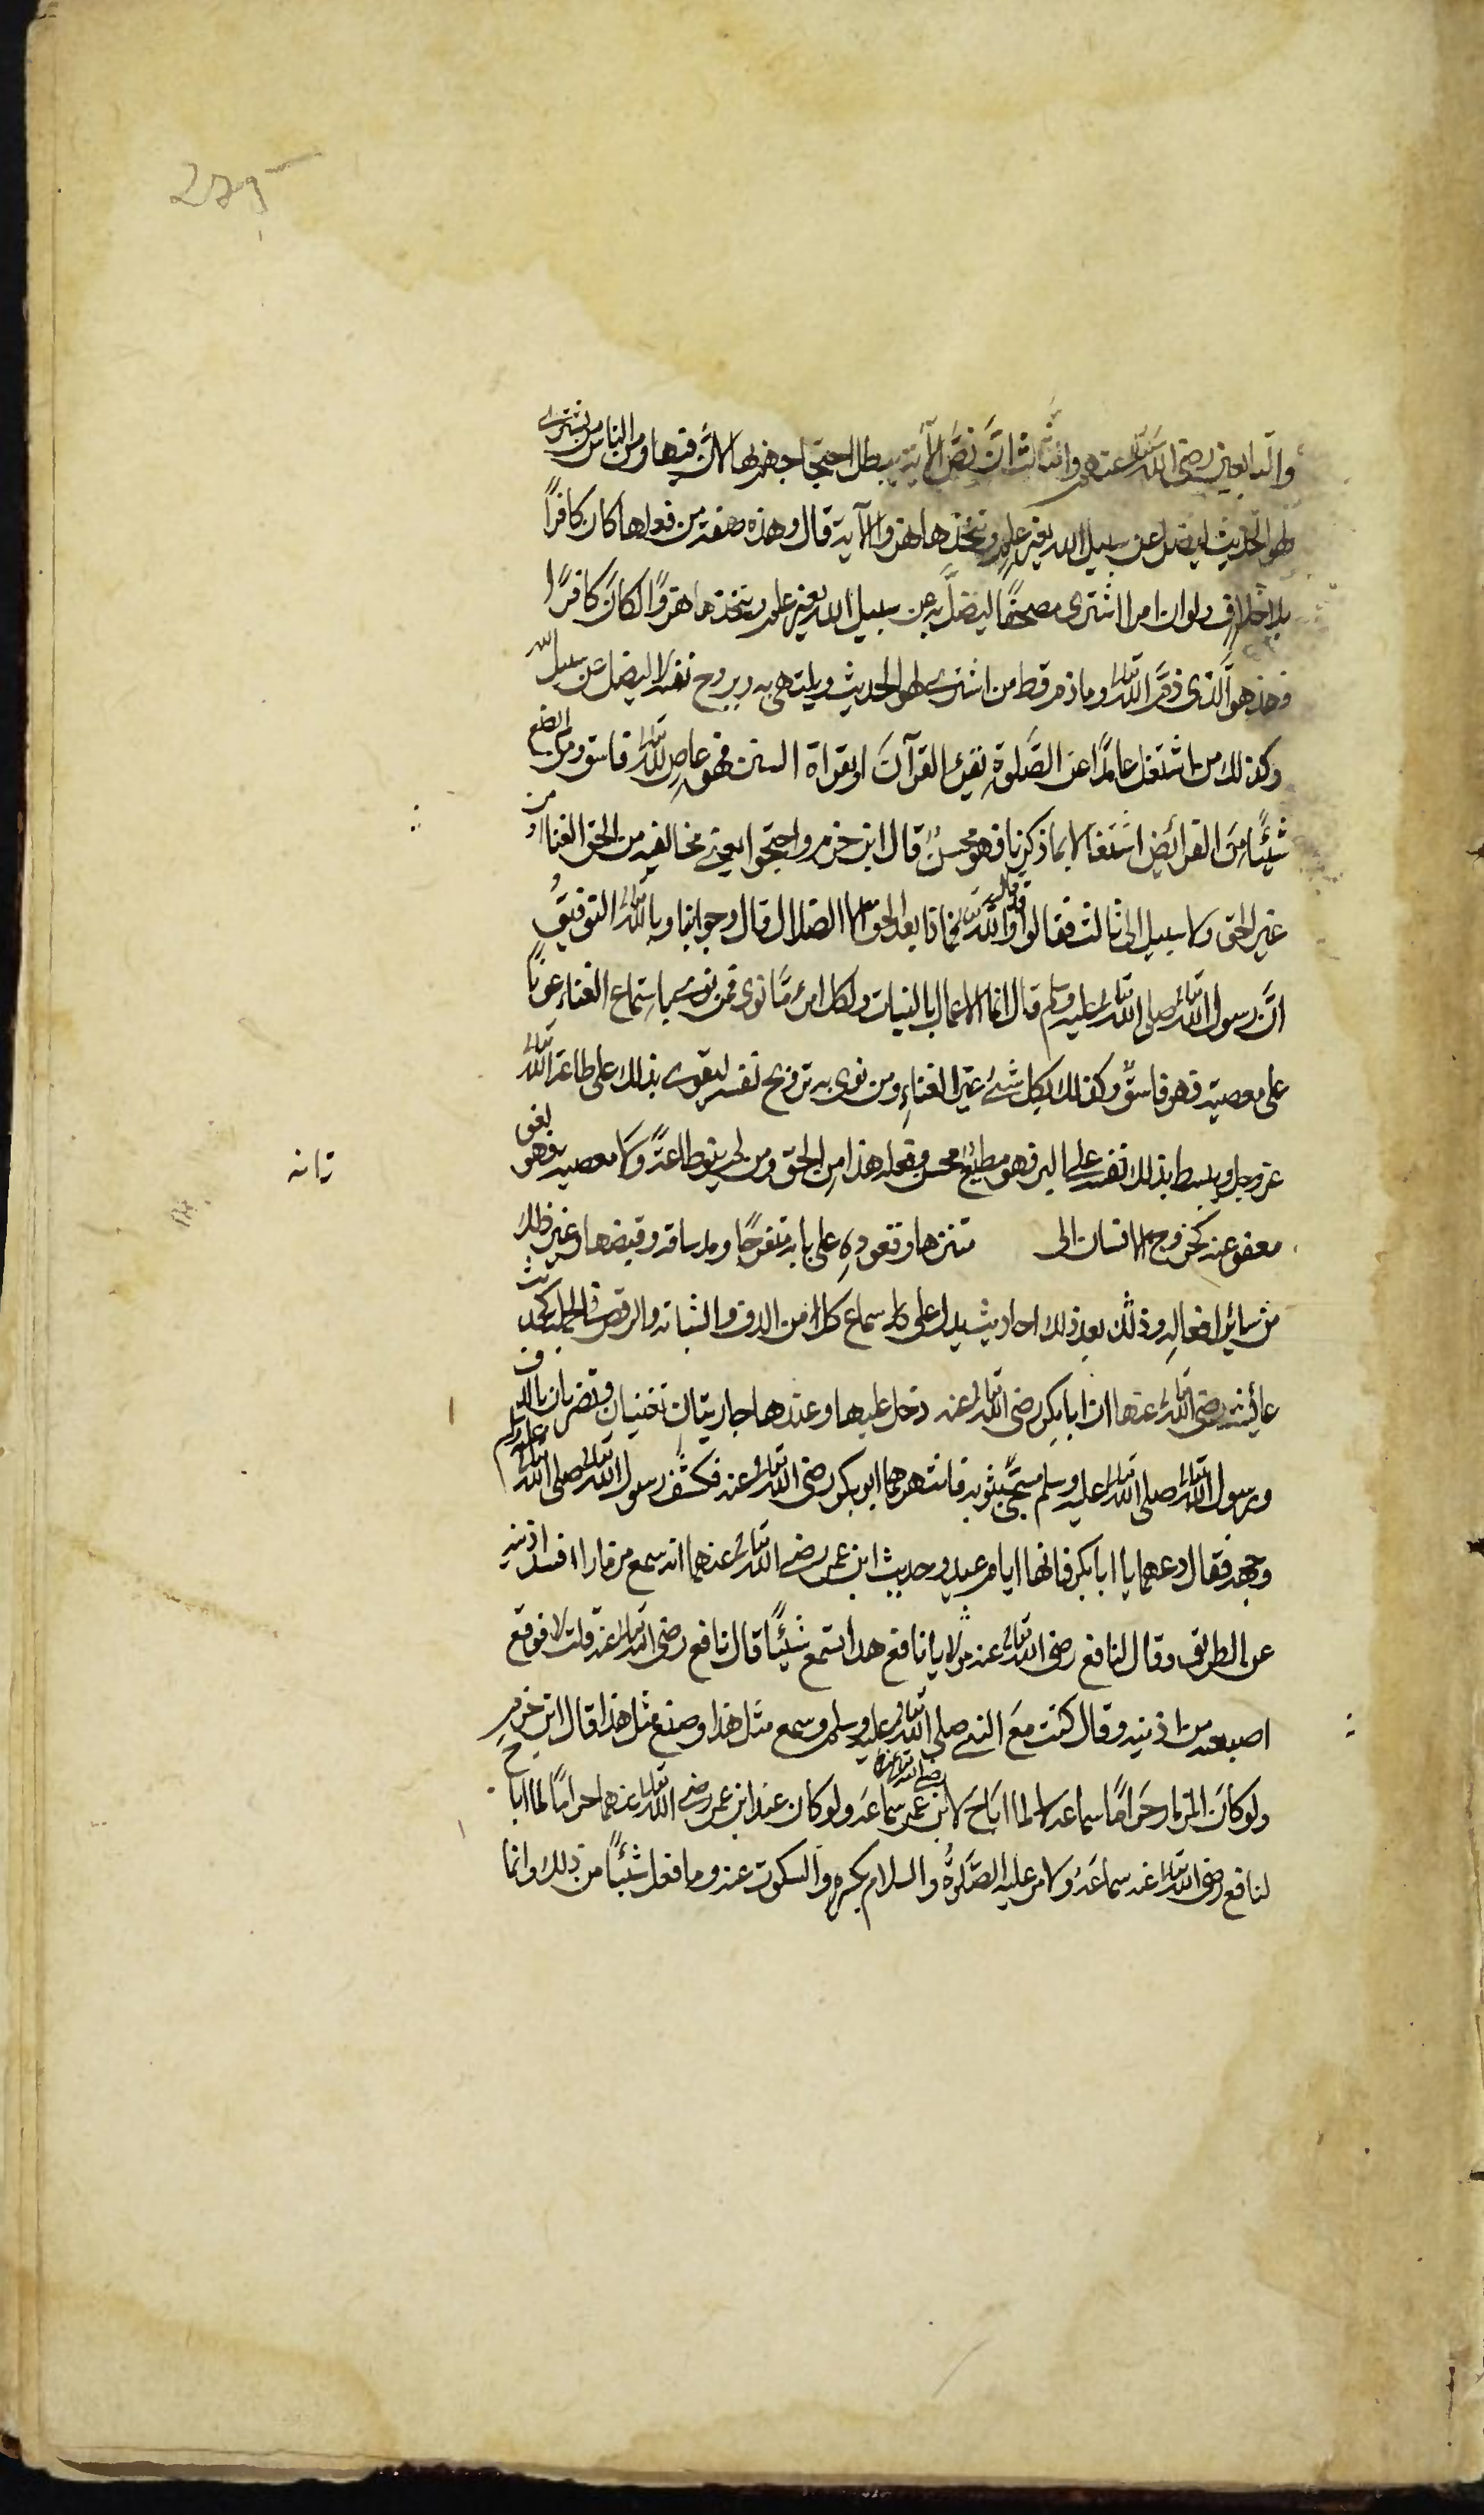 والتابعين رضى الله تعالى عنهم والثالث انّ نصَّ الآية يبطل احتجاجهم بها لانّ فيها ومن الناس من يشترى
لهو الحديث ليضل عن سبيل الله بغير علم ويتخذها هزوا الآية قال وهذه صفة من فعلها كان كافرًا
بلا خلاف ولو ان امرا اشترى مصحفًا ليضلَّ به عن سبيل الله بغير علم ويتخذها هزوًا لكان كافرًا
فهذ هو الّذى ذمَّ الله تعالى وما ذم قط من اشترى لهو الحديث ويلتهى به ويروح نفسه لا ليضل عن سبيل الله
وكذلك من اشتغل عامدًا عن الصَّلوة بقرئ القرآنَ او بقراة السنن فهو عاصٍ لله تعالى فاسق ومن لم يضيّع
شيئًا من الفرائض اشتغالا بما ذكرنا فهو محسنٌ قال ابن حزم واحتجوا يعنى مخالفيه من الحق الغنا او من
غير الحق ولا سبيل الى ثالث فقالوا وقد قال الله تعالى فماذا بعد الحق الا الضلال قال وجوابنا وبالله تعالى التوفيقُ
انّ رسول الله تعالى صلى الله تعالى عليه وسلم قال انما الاعمال بالنيات ولكل امرء مّا نوى فمن نوى باستماع الغناء عونًا
على معصية فهو فاسقٌ وكذلك بكل شئ غير الغناءِ ومن نوى به ترويح نفسه ليقوى بذلك على طاعة الله تعالى
عز وجل ويبسط بذلك نفسه على البر فهو مطيعٌ محسن وفعله هذا من الحق ومن لم ينو طاعةً ولا معصية فهو لغو
معفو عنه كخروج الانسان الى متنزها وقعوده على بابه متفرجًا ومد ساقه وقبضها وغير ذلك
من سائر افعاله وذكر بعد ذلك احاديث يدل على سماع كل من الدف والشبابة والرقص فى الجملة كحديث
عائشة رضى الله تعالى عنها ان ابا بكر رضى الله تعالى عنه دخل عليها وعندها جاريتان تغنيان وتضربان بالدف
ورسول الله تعالى صلى الله تعالى عليه وسلم مسجًّى بثوبه فانتهرهما ابو بكر رضى الله تعالى عنه فكشف رسول الله تعالى صلى الله تعالى عليه وسلم
وجهه فقال دعهما يا ابا بكر فانها ايام عيد وحديث ابن عمر رضى الله تعالى عنهما انه سمع مزمارا فسد اذنيه
عن الطريق وقال لنافع رضى الله تعالى عنه يا نافع هل تسمع شيئًا قال نافع رضى الله تعالى عنه قلت لا فوقع
اصبعه من اذنيه وقال كنت مع النبى صلى الله تعالى عليه وسلم وسمع مثل هذا وصنع مثل هذا قال ابن حزم
ولو كان المزمار حرامًا سماعه لما اباحَ لابن عمر رضى الله تعالى عنه سماعَه ولو كان عند ابن عمر رضى الله تعالى عنهما حرامًا لما اباح
لنافع رضى الله تعالى عنه سماعَه ولامر عليه الصَّلوةُ والسلام بكسره والسكوت عنه وما فعل شيئًا من ذلك وانما